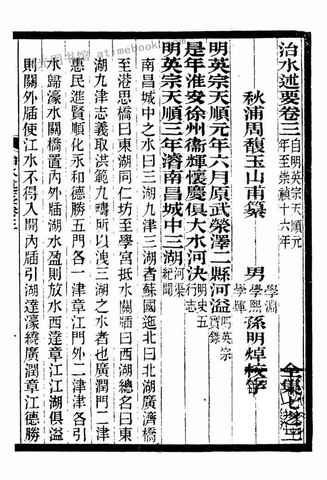 治水述要卷三 自明英宗天順元年至崇禎十六年
秋浦周馥玉山甫纂 男 學淵 學熙 學煇 孫明焯校字
明英宗天順元年六月原武榮澤二縣河溢 明英宗實錄
是年淮安徐州衞輝懷慶俱大水河決 明史五行志
明英宗天順三年濬南昌城中三湖 河渠紀聞
南昌城中之水曰三湖九津三湖者蘇國迤北曰北湖廣濟橋
至港思橋曰東湖同仁坊至學宮抵水關曰西湖總名曰東
湖九津志義取洪範九疇所以洩三湖之水者也廣潤門二津
惠民進賢順化永和德勝五門各一津章江門外二津津各引
水歸濠水關橋置內外牐湖水盈則放水西達章江江湖俱溢
則關外牐使江水不得入開內牐引湖達濠繞廣潤章江德勝
全集